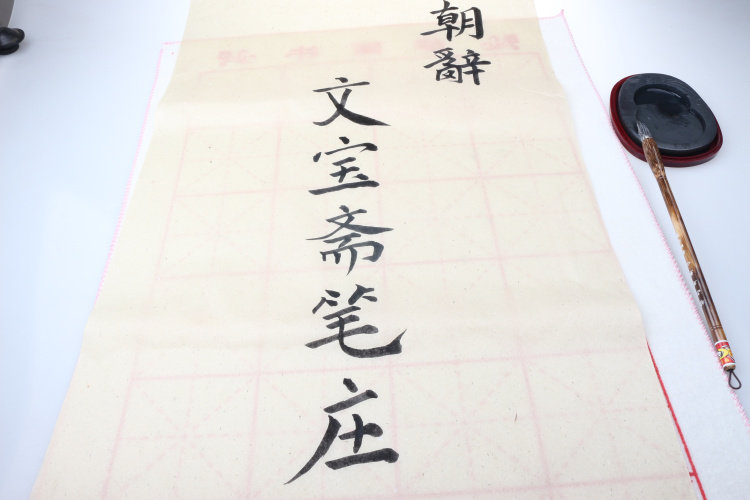 朝辭
文宝斋笔庄